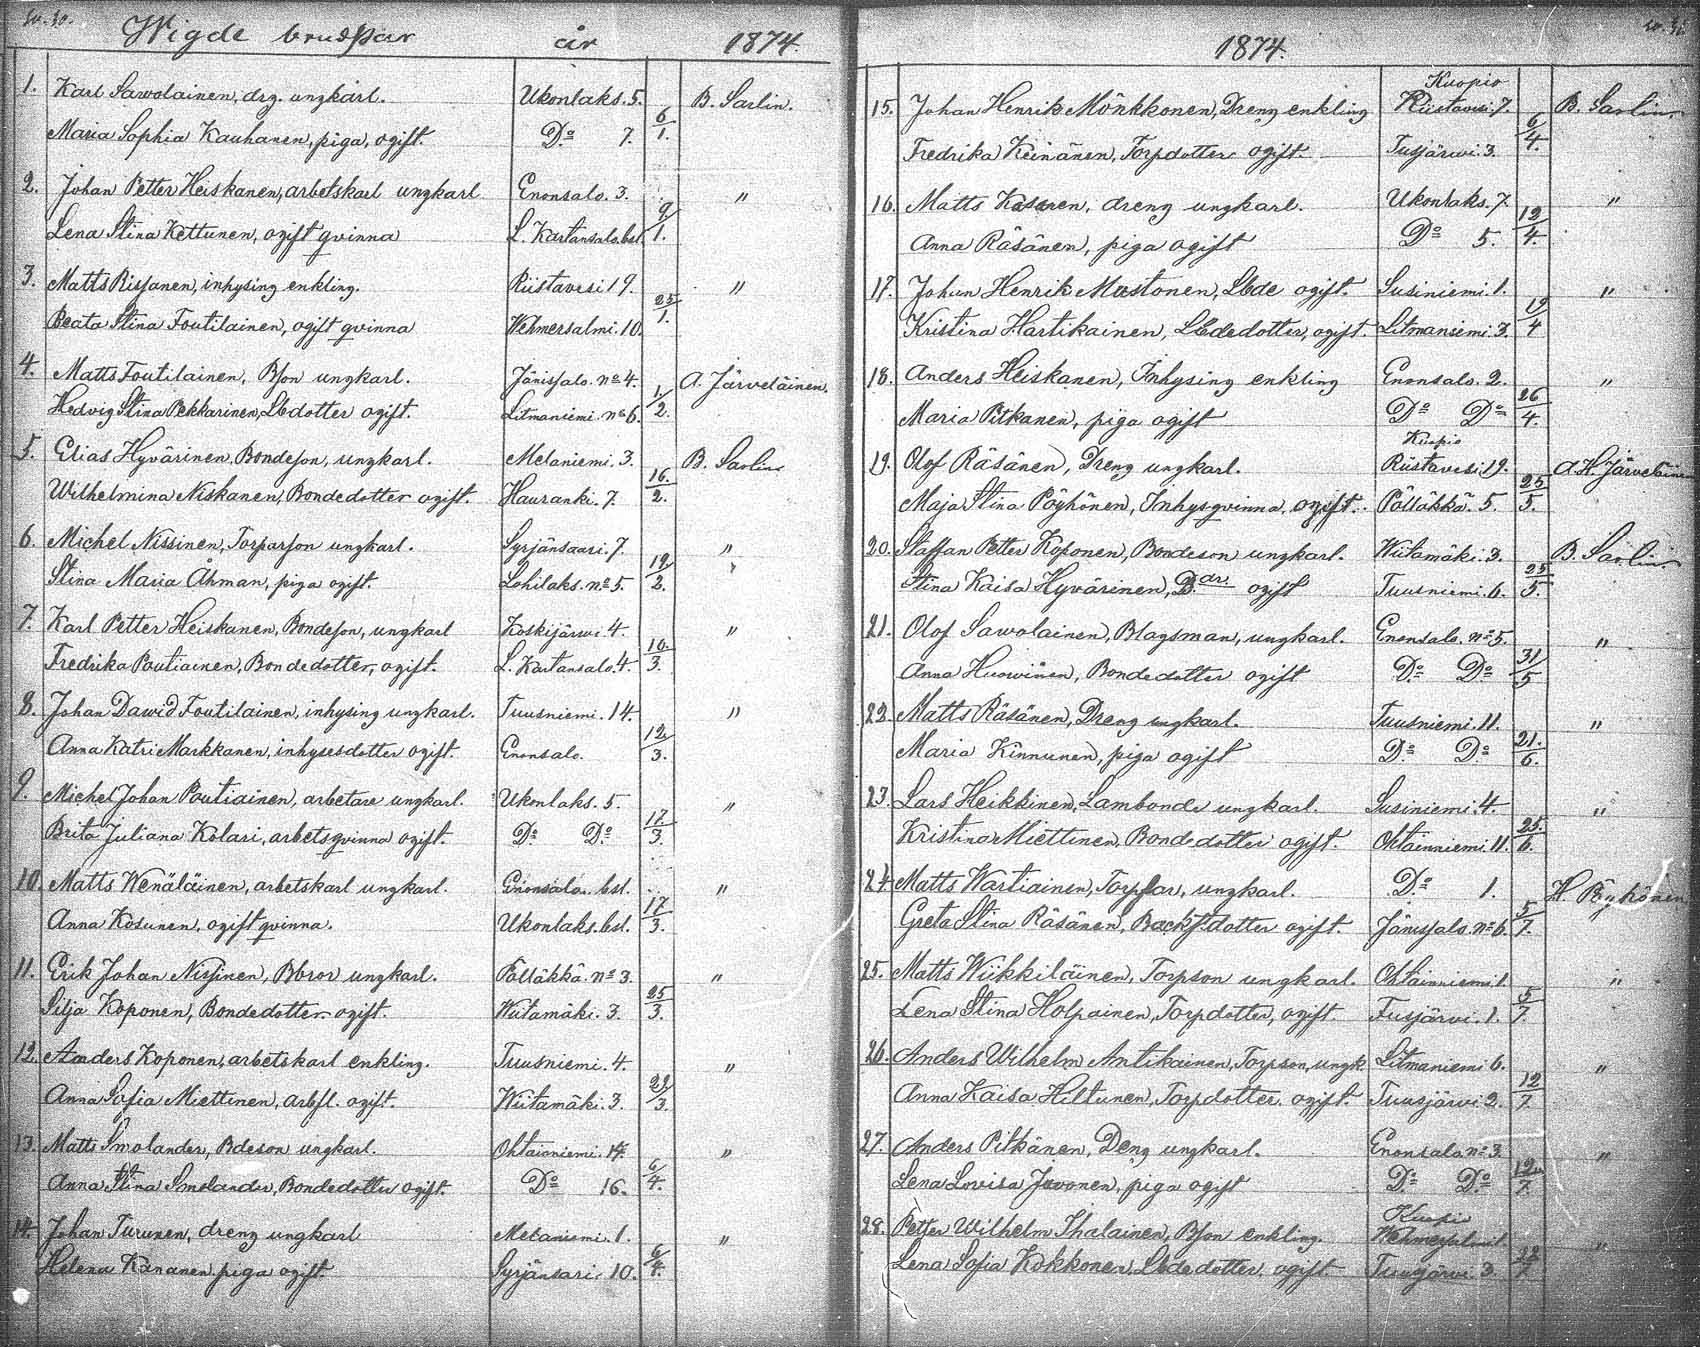 Wigde brudpar år 1874.
1. Karl Sawolainen, drg. ungkarl. Ukonlaks. 5. B. Sarlin.
Maria Sophia Kauhanen, piga, ogift. Do 7. 6/1.
2. Johan Petter Heiskanen, arbetskarl ungkarl Enonsalo. 3. "
Lena Stina Kettunen, ogift qvinna L. Kartansalo. bst. 9/1.
3. Matts Rissanen, inhysing enkling. Riistavesi 19. "
Beata Stina Toutilainen, ogift qvinna Wehmersalmi. 10. 25/1.
4. Matts Toutilainen, Bson ungkarl. Jänissalo. No 4. A. Järveläinen.
Hedvig Stina Pekkarinen, Lbdotter ogift. Litmaniemi. No 6. 1/2.
5. Elias Hyvärinen, Bondeson, ungkarl. Melaniemi. 3. B. Sarlin
Wilhelmina Niskanen, Bondedotter ogift. Hauranki. 7 16/2.
6. Michel Nissinen, Torparson ungkarl. Syrjänsaari. 7. "
Stina Maria Åhman, piga ogift. Lohilaks. No 5. 19/2.
7. Karl Petter Heiskanen, Bondeson, ungkarl Koskijärvi 4. "
Fredrika Poutiainen, Bondedotter, ogift. L. Kartansalo. 4. 10/3.
8. Johan Dawid Toutilainen, inhysing ungkarl. Tuusniemi. 14. "
Anna Katri Markkanen, inhysesdotter ogift. Enonsalo. 12/3.
9. Michel Johan Poutiainen, arbetare ungkarl. Ukonlaks. 5. "
Brita Juliana Kolari, arbetsqvinna ogift. Do Do 17/3.
10. Matts Wenäläinen, arbetskarl ungkarl. Enonsalo. bst. "
Anna Kosunen, ogift qvinna. Ukonlaks. bst. 17/3.
11. Erik Johan Nissinen, Bbror ungkarl. Pälläkkä. No 3. "
Silja Koponen, Bondedotter ogift. Wiitamäki. 3. 25/3.
12. Anders Koponen, arbetskarl enkling. Tuusniemi. 4. "
Anna Sofia Miettinen, arbfl. ogift. Wiitamäki. 3. 29/3.
13. Matts Smolander, Bdeson ungkarl. Ohtainniemi. 14. "
Anna Stina Smolander, Bondedotter ogift. Do 16. 6/4.
14. Johan Turunen, dreng ungkarl Melaniemi. 1. "
Helena Kananen piga ogift. Syrjänsari 10. 6/4.
1874.
15. Johan Henrik Mönkkonen, Dreng enkling Kuopio Riistavesi. 7. B. Sarlin.
Fredrika Keinänen, Torpdotter ogift. Tusjärwi. 3. 6/4.
16. Matts Kosunen, dreng ungkarl. Ukonlaks. 7. "
Anna Räsänen, piga ogift Do 5. 12/4.
17. Johan Henrik Mustonen, Lbde ogift. Susiniemi. 1. "
Kristina Hartikainen, Lbdedotter, ogift. Litmaniemi. 3. 19/4
18. Anders Heiskanen, Inhysing enkling Enonsalo. 2. "
Maria Pitkanen, piga ogift Do Do 26/4.
19. Olof Räsänen, Dreng ungkarl. Kuopio Riistavesi. 19. A. H. Järveläinen
Maja Stina Pöyhönen, Inhysqvinna, ogift. Pälläkkä. 5 25/5.
20. Staffan Petter Koponen, Bondeson ungkarl. Wiitamäki. 3. B. Sarlin.
Stina Kaisa Hyvärinen, Bdr. ogift Tuusniemi. 6. 25/5.
21. Olof Sawolainen, Blagsman, ungkarl. Enonsalo. No 5. "
Anna Huowinen, Bondedotter ogift Do Do 31/5
22. Matts Räsänen, Dreng ungkarl. Tuusniemi. 11. "
Maria Kinnunen, piga ogift Do Do 21/6.
23. Lars Heikkinen, Lambonde ungkarl. Susiniemi. 4. "
Kristina Miettinen, Bondedotter ogift. Ohtainniemi. 11. 25/6.
24. Matts Wartiainen, Torpar, ungkarl. Do 1. H. Pöyhönen
Greta Stina Räsänen, Backstdotter ogift. Jänissalo. No 6. 5/7.
25. Matts Wiikkiläinen, Torpson ungkarl. Ohtainniemi 1. "
Lena Stina Holpainen, Torpdotter, ogift. Tusjärvi. 1. 5/7.
26. Anders Wilhelm Antikainen, Torpson, ungk Litmaniemi 6. "
Anna Kaisa Hiltunen, Torpdotter. ogift. Tuusjärvi. 2. 12/7.
27. Anders Pitkänen, Deng ungkarl. Enonsalo No 3. "
Lena Lovisa Juvonen, piga ogift Do Do 12/7.
28. Petter Wilhelm Ihalainen, Bson enkling. Kuopio Wehmersalmi 1 "
Lena Sofia Kokkonen. Lbdedotter. ogift Tuusjärvi. 3.